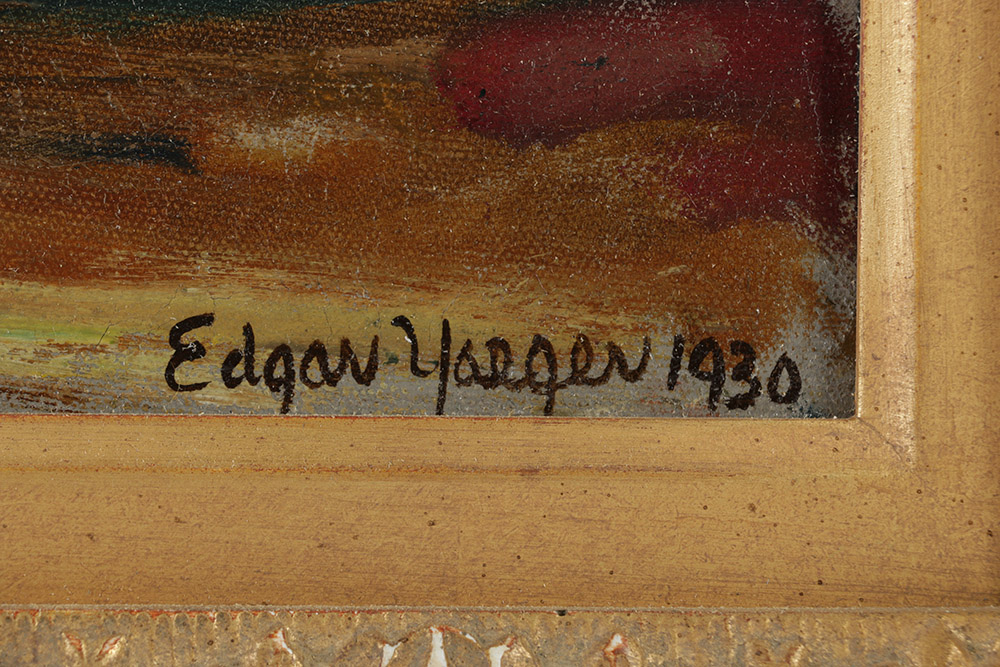 Edgar Yaeger 1930